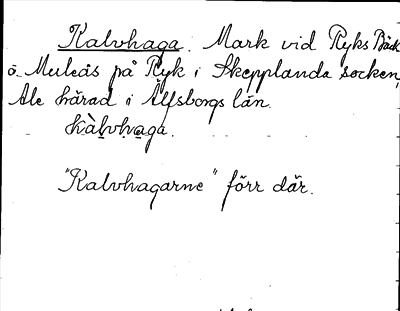 Kalvhaga. Mark vid Ryks Bäck
o. Muleås på Ryk i Skepplanda socken,
Ale härad i Älfsborgs län.
kàlvhaga.
"Kalvhagarne" förr där.